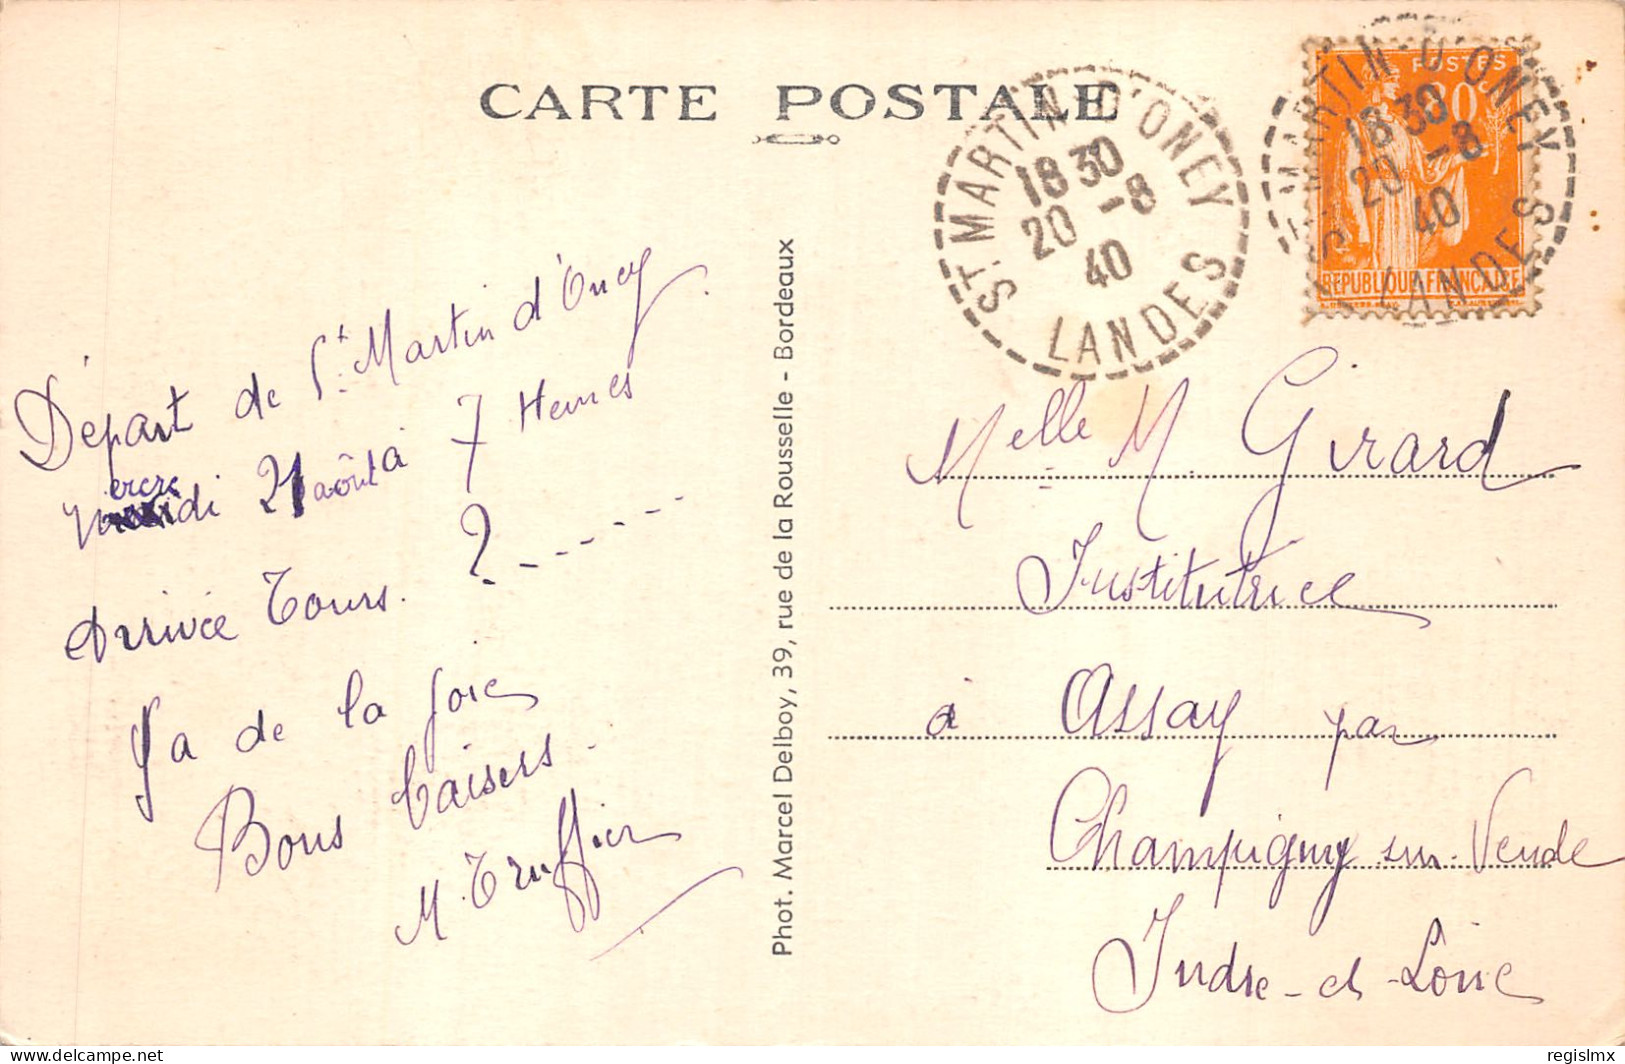 CARTE POSTALE
Départ de St. Martin d'Oney.
Mercredi 21 août à 7 Heures
Arrivée Tours. ? ------
Ya de la joie
Bons baisers.
M. Truffier
Phot. Marcel Delboy, 39, rue de la Rousselle - Bordeaux
ST. MARTIN-D'ONEY
18 30
20 -8
40
LANDES
ST. MARTIN-D'ONEY
18 30
20 -8
40
LANDES
POSTES
80c
REPUBLIQUE FRANÇAISE
Melle M. Girard
Institutrice
à Assay par
Champigny sur Veude
Indre-et-Loire
regislmx
delcampe.net